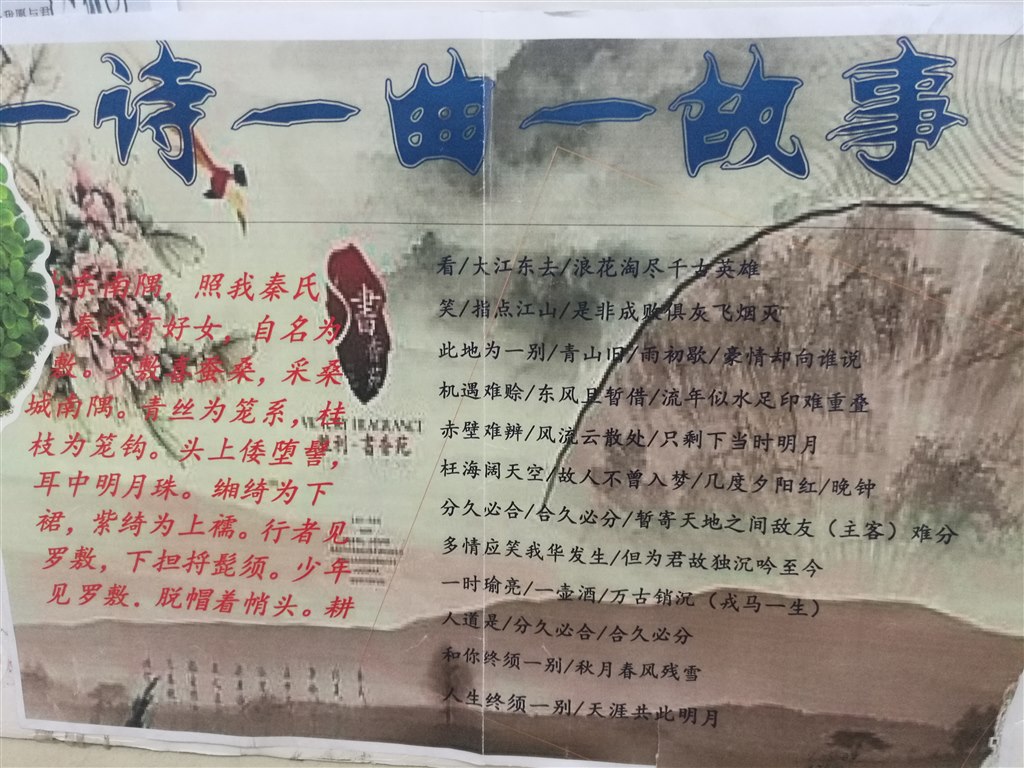 一诗一曲一故事
东南隅，照我秦氏
秦氏有好女，自名为
敷。罗敷喜蚕桑，采桑
城南隅。青丝为笼系，桂
枝为笼钩。头上倭堕髻，
耳中明月珠。缃绮为下
裙，紫绮为上襦。行者见
罗敷，下担捋髭须。少年
见罗敷．脱帽着帩头。耕
書香苑
書香苑
看/大江东去/浪花淘尽千古英雄
笑/指点江山/是非成败俱灰飞烟灭
此地为一别/青山旧/雨初歇/豪情却向谁说
机遇难赊/东风且暂借/流年似水足印难重叠
赤壁难辨/风流云散处/只剩下当时明月
枉海阔天空/故人不曾入梦/几度夕阳红/晚钟
分久必合/合久必分/暂寄天地之间敌友（主客）难分
多情应笑我华发生/但为君故独沉吟至今
一时瑜亮/一壶酒/万古销沉（戎马一生）
人道是/分久必合/合久必分
和你终须一别/秋月春风残雪
人生终须一别/天涯共此明月